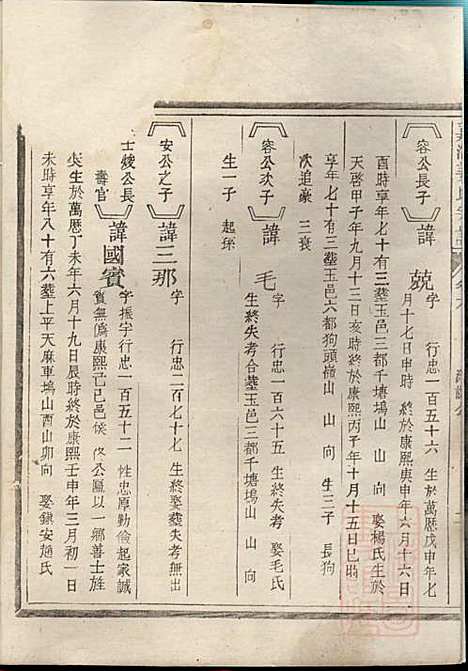 容公長子
諱兢
字 行忠一百五十六 生於萬歷戊申年七
月十七日申時 終於康熙庚申年八月十六日
酉時享年七十有三塟玉邑三都千塘塢山 山向 娶楊氏生於
天啓甲子年九月十三日亥時終於康熙丙子年十月十五日巳時
享年七十有三塟玉邑六都狗頭嶺山 山向 生三子 長狗
次追豪 三衰
容公次子
諱毛
字 行忠一百六十五 生終失考 娶毛氏
生終失考合塟玉邑三都千塘塢山 山向
生一子 起琭
安公之子
諱三那
字 行忠二百七十七 生終娶塟失考無出
士峻公長
諱國賓
壽官
字振宇行忠一百五十二 性忠厚勤倹起家誠
實無僞康熙 已巳邑候 佟公匾以一鄉善士旌
奖生於萬歷丁未年六月十九日辰時終於康熙壬申年三月初一日
未時享年八十有六塟上平天麻車塢山酉山卯向 娶鎮安趙氏